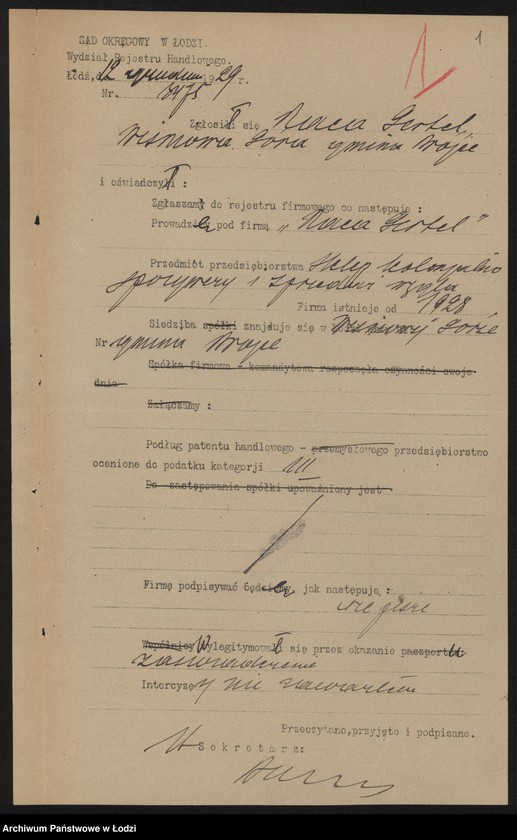 1
SĄD OKRĘGOWY W ŁODZI.
Wydział Rejestru Handlowego.
Łódź, d. 12 grudnia 1929 r.
Nr. 8475
Zgłosił się
Wiśniowa Góra gmina
i oświadczył:
Zgłaszam do rejestru firmowego co następuje :
Prowadzę pod firmą
Przedmiot przedsiębiorstwa Sklep kolonjalno
spożywczy i sprzedaż
Firma istnieje od 1928
Siedziba spółki znajduje się w Wiśniowej Górze
Nr. gmina
Spółka firmowa - komandytowa rozpoczęła czynności swoje
dnia
Załączamy :
Podług patentu handlowego - przemysłowego przedsiębiorstwo
ocenione do podatku kategorji III
Do zastępowania spółki upoważniony jest
Firmę podpisywać będę jak następuje :
nie pisze
Wylegitymował się przez okazanie paszportu
zaświadczenie
Intercyzy nie zawarłem
Przeczytano, przyjęto i podpisano.
Sekretarz:
Archiwum Państwowe w Łodzi